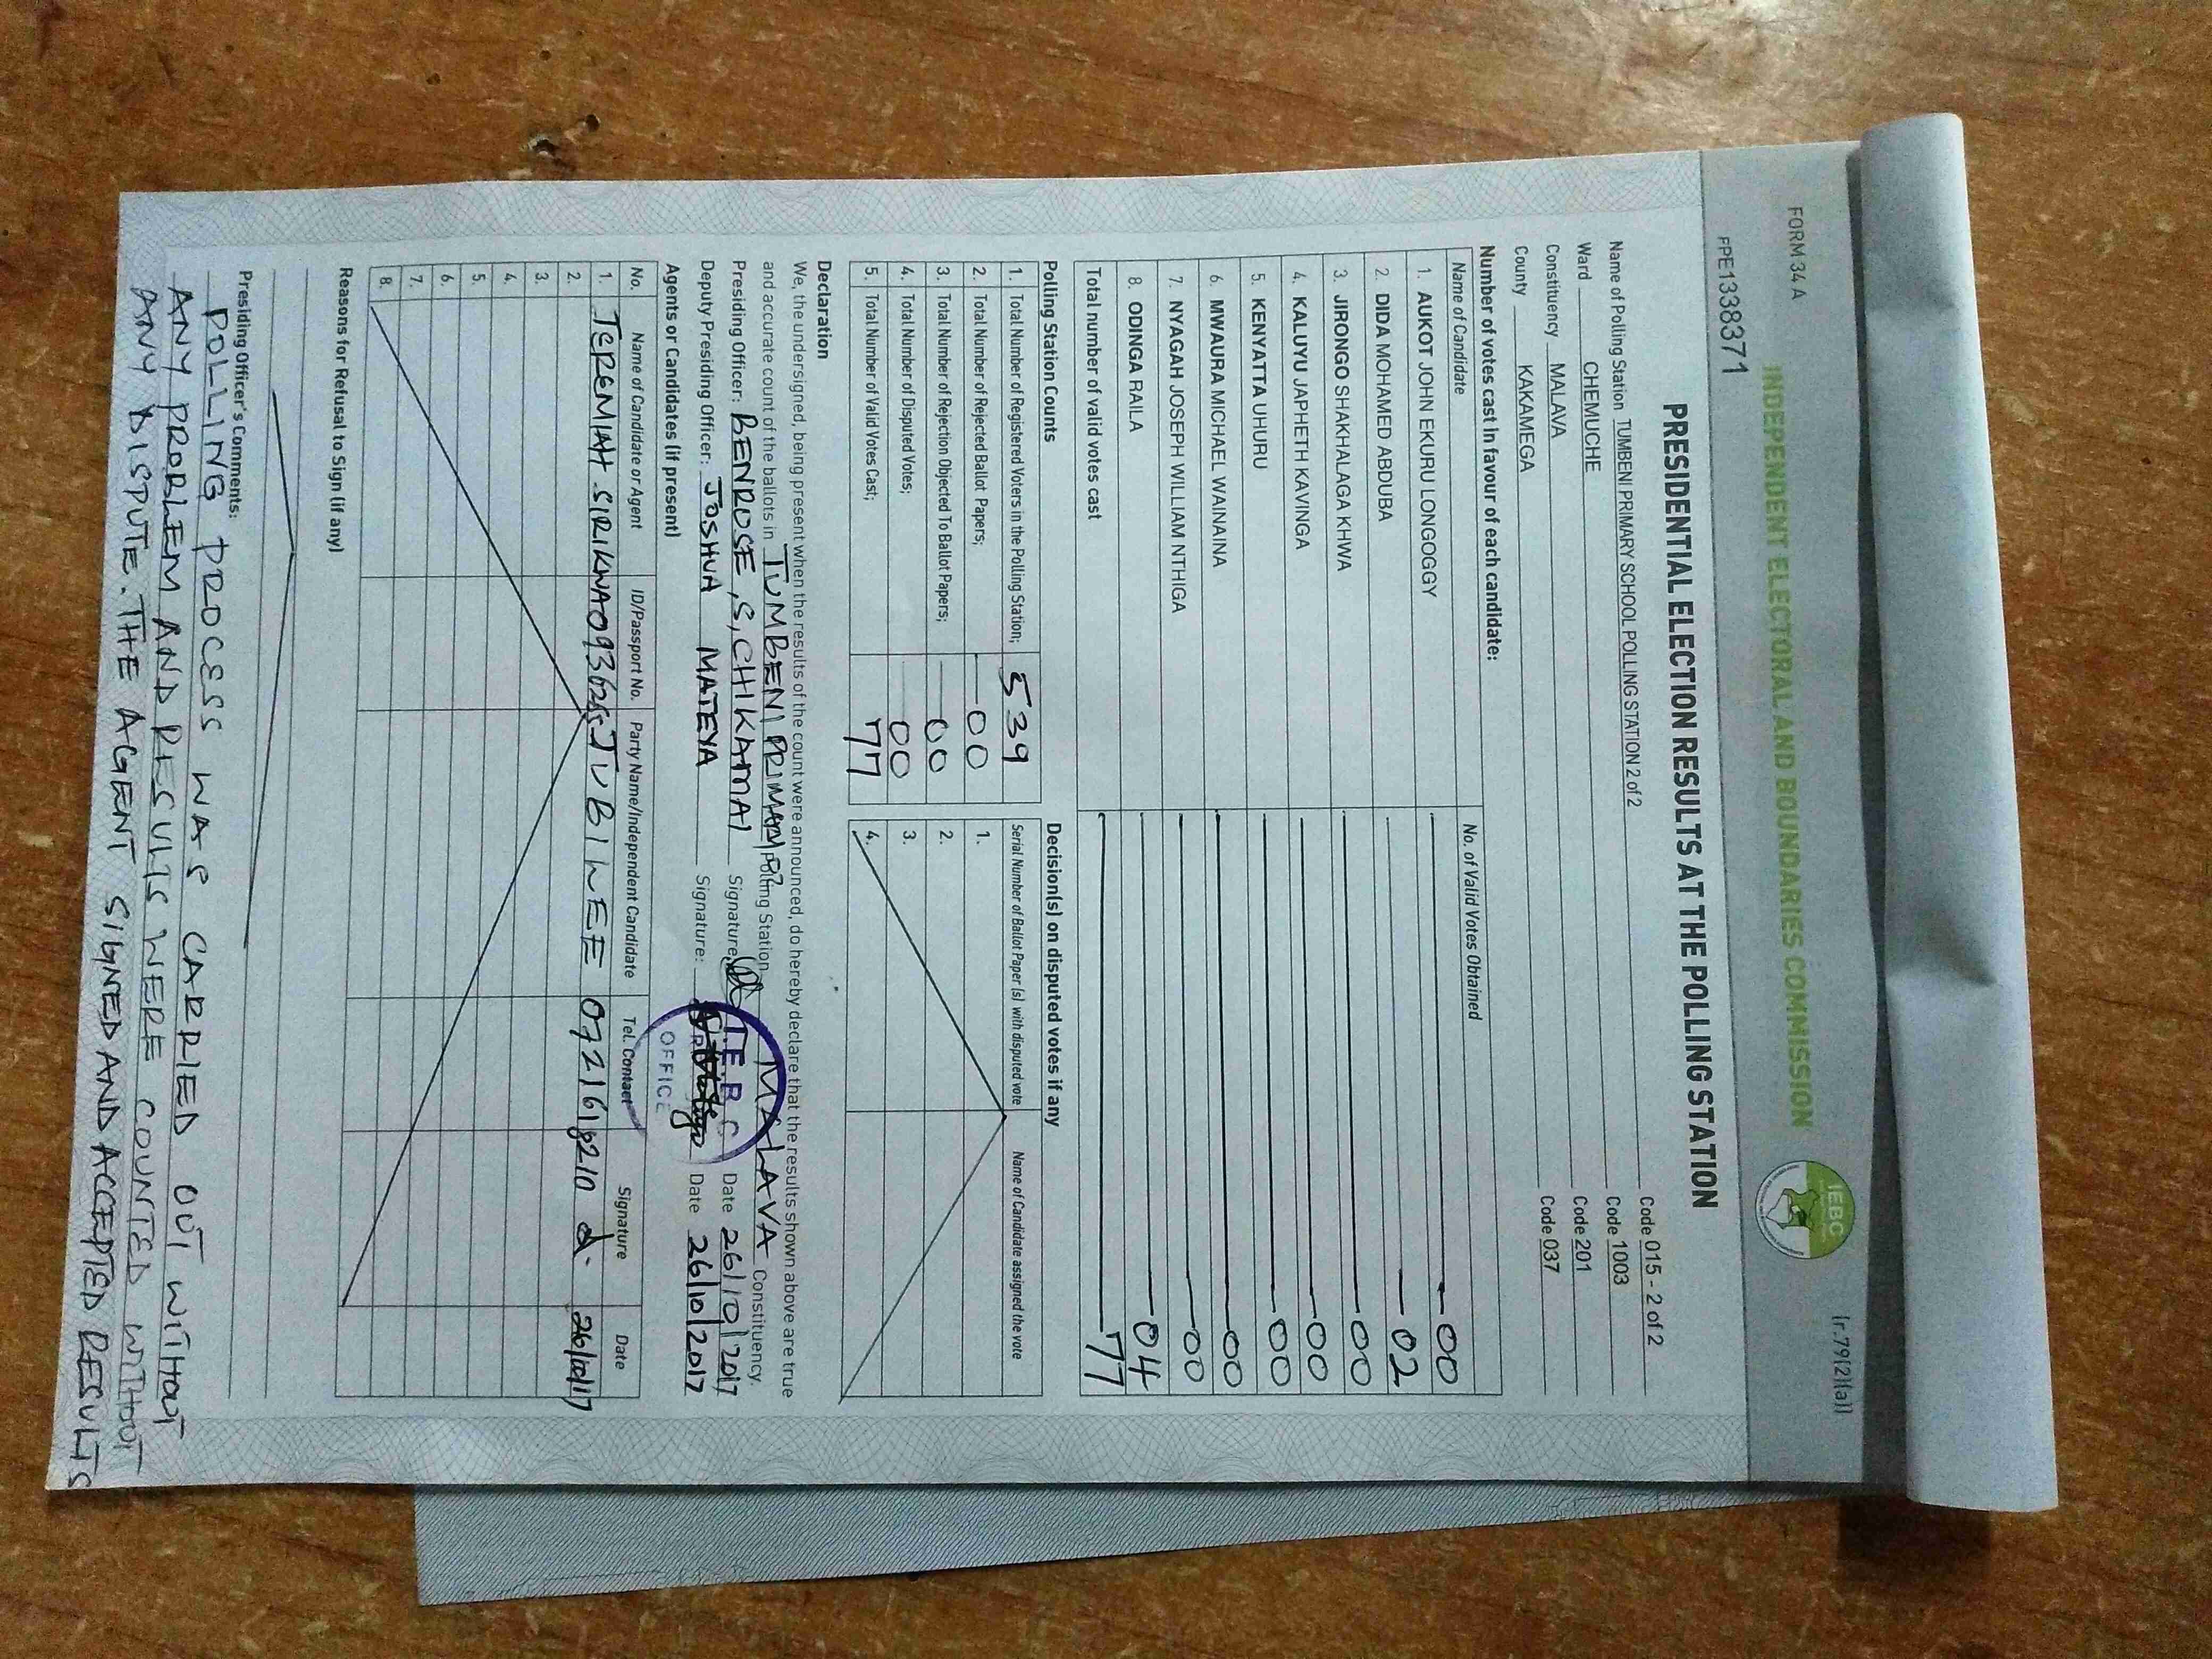 FORM 34 A
(r.79(2)(a))
INDEPENDENT ELECTORAL AND BOUNDARIES COMMISSION
IEBC
PPE1338371
PRESIDENTIAL ELECTION RESULTS AT THE POLLING STATION
Name of Polling Station TUMBENI PRIMARY SCHOOL POLLING STATION 2 of 2 Code 015 - 2 of 2
Ward CHEMUCHE Code 1003
Constituency MALAVA Code 201
County KAKAMEGA Code 037
Number of votes cast in favour of each candidate:
Name of Candidate No. of Valid Votes Obtained
1. AUKOT JOHN EKURU LONGOGGY 00
2. DIDA MOHAMED ABDUBA 02
3. JIRONGO SHAKHALAGA KHWA 00
4. KALUYU JAPHETH KAVINGA 00
5. KENYATTA UHURU 00
6. MWAURA MICHAEL WAINAINA 00
7. NYAGAH JOSEPH WILLIAM NTHIGA 00
8. ODINGA RAILA 04
Total number of valid votes cast 77
Polling Station Counts
1. Total Number of Registered Voters in the Polling Station; 539
2. Total Number of Rejected Ballot Papers; 00
3. Total Number of Rejection Objected To Ballot Papers; 00
4. Total Number of Disputed Votes; 00
5. Total Number of Valid Votes Cast; 77
Decision(s) on disputed votes if any
Serial Number of Ballot Paper (s) with disputed vote Name of Candidate assigned the vote
1.
2.
3.
4.
Declaration
We, the undersigned, being present when the results of the count were announced, do hereby declare that the results shown above are true
and accurate count of the ballots in TUMBENI PRIMARY Polling Station MALAVA Constituency.
Presiding Officer: BENROSE, S, CHIKAMAI Signature: Date 26/10/2017
Deputy Presiding Officer: JOSHUA MATEYA Signature: Date 26/10/2017
I.E.B.C
OFFICE
Agents or Candidates (if present)
No. Name of Candidate or Agent ID/Passport No. Party Name/Independent Candidate Tel. Contact Signature Date
1. JEREMIAH SIRIKWA JUBILEE 0721618210 26/10/17
2.
3.
4.
5.
6.
7.
8.
Reasons for Refusal to Sign (if any)
Presiding Officer's Comments:
POLLING PROCESS WAS CARRIED OUT WITHOUT
ANY PROBLEM AND RESULTS WERE COUNTED WITHOUT
ANY DISPUTE. THE AGENT SIGNED AND ACCEPTED RESULTS